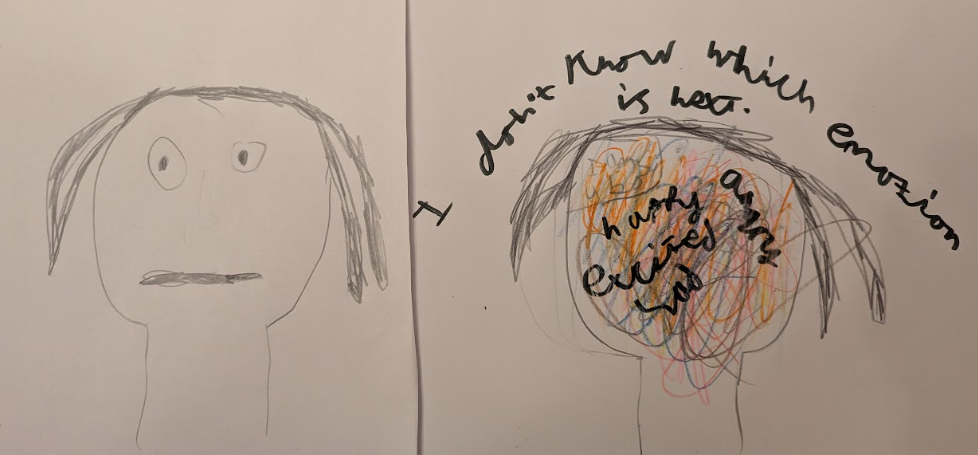 I don't know which emozion
is next.
happy
angry
excited
sad